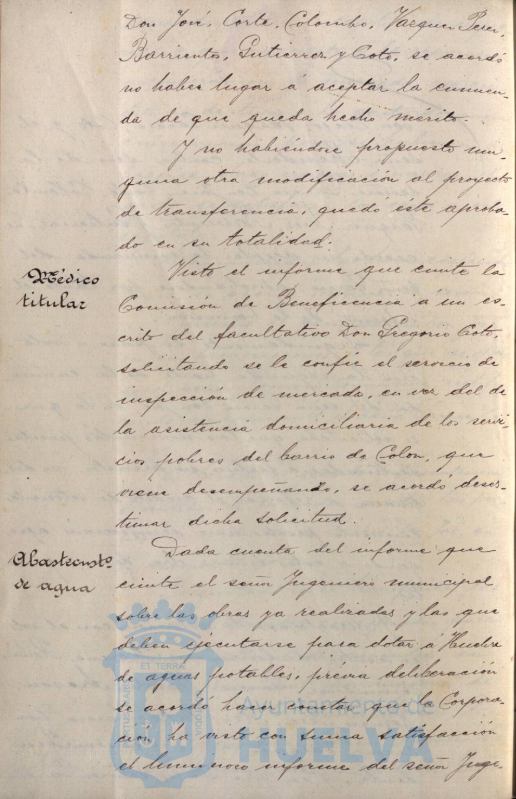 Don José, Corte, Colombo, Vazquez Perez,
Barrientos, Gutierrez y Coto, se acordó
no haber lugar á aceptar la enmien-
da de que queda hecho mérito.
Y no habiéndose propuesto nin-
guna otra modificación al proyecto
de transferencia, quedó éste aproba-
do en su totalidad.
Médico
titular
Visto el informe que emite la
Comisión de Beneficencia á un es-
crito del facultativo Don Gregorio Coto,
solicitando se le confie el servicio de
inspección de mercado, en vez del de
la asistencia domiciliaria de los servi-
cios pobres del barrio de Colon, que
viene desempeñando, se acordó deses-
timar dicha solicitud.
Abastecmto
de agua
Dada cuenta del informe que
emite el señor Ingeniero municipal
sobre las obras ya realizadas y las que
deben ejecutarse para dotar á Huelva
de aguas potables, prévia deliberación
se acordó hacer constar que la Corpora-
ción ha visto con suma satisfacción
el luminoso informe del señor Inge-
Ayuntamiento de
HUELVA